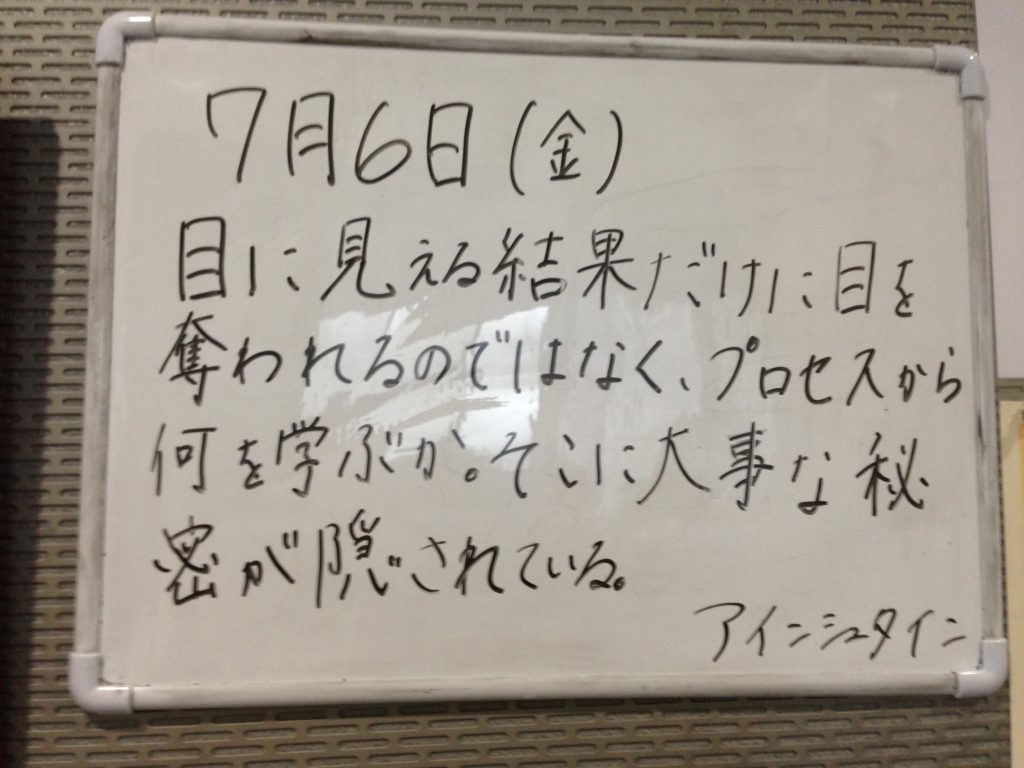 7月6日(金)
目に見える結果だけに目を
奪われるのではなく、プロセスから
何を学ぶか。そこに大事な秘
密が隠されている。
アインシュタイン